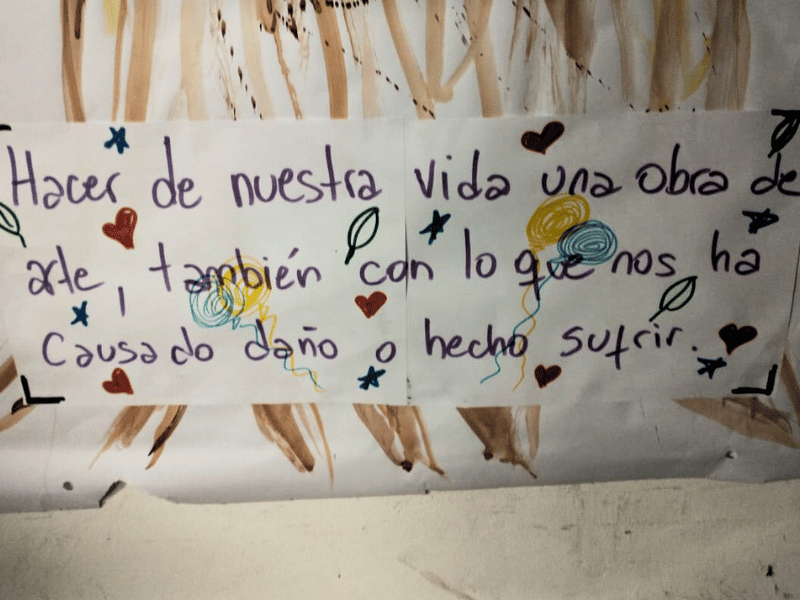 Hacer de nuestra vida una obra de
arte, también con lo que nos ha
causado daño o hecho sufrir.